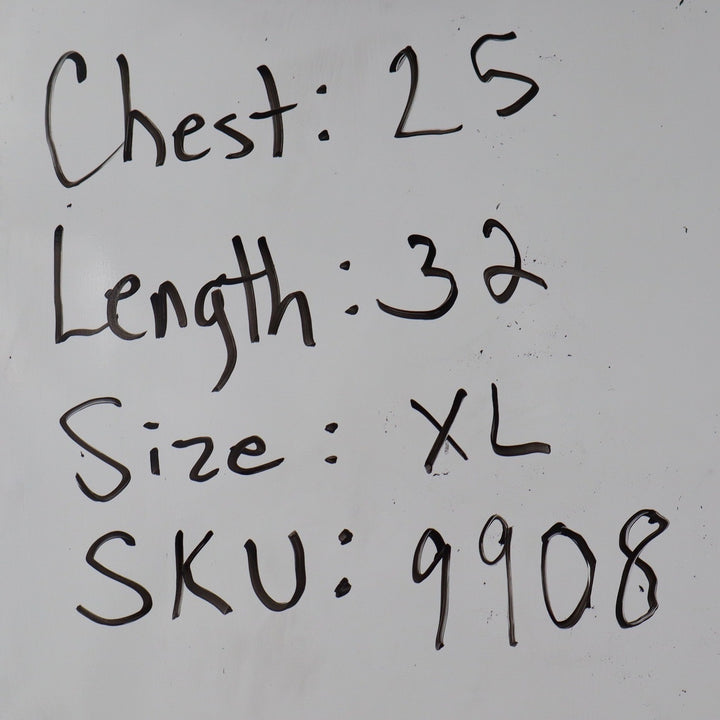 Chest: 25
Length: 32
Size: XL
SKU: 9908